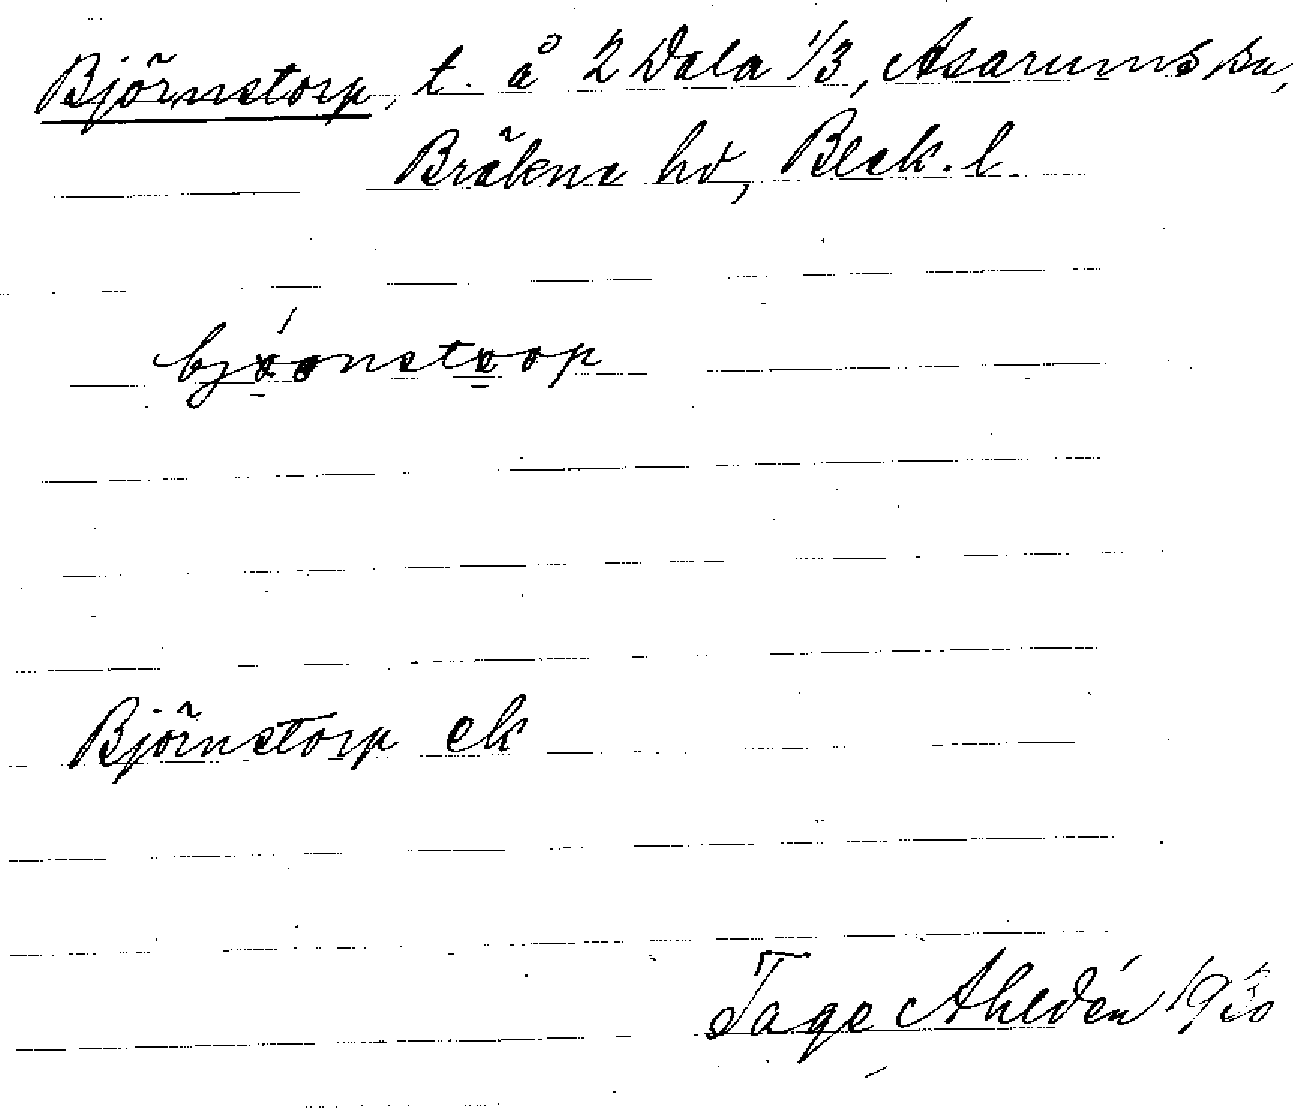 Björnstorp, t. å 2 Dala 1/3, Asarums sn,
Bräkne hd, Blek. l.
Björnstorp ek
Tage Ahldén 19